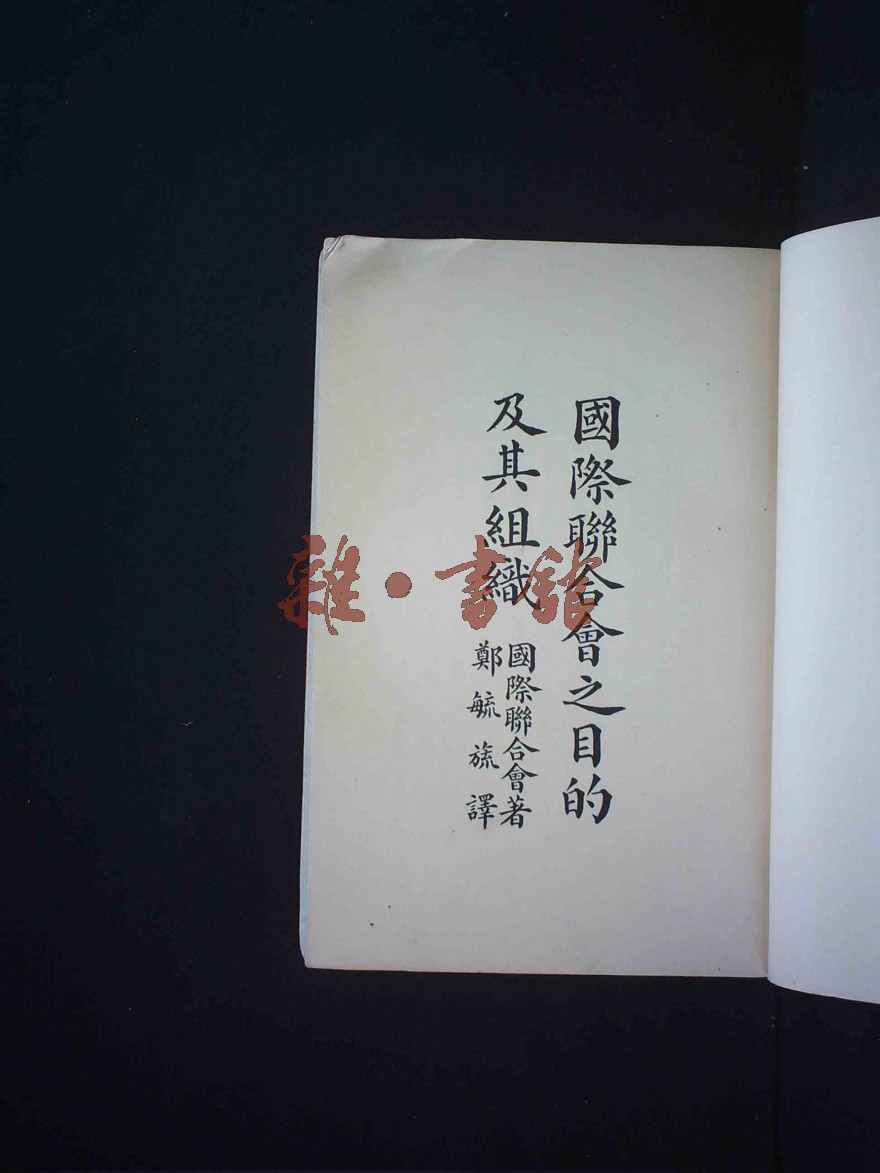 國際聯合會之目的
及其組織
國際聯合會著
鄭毓旒譯
雜·書館